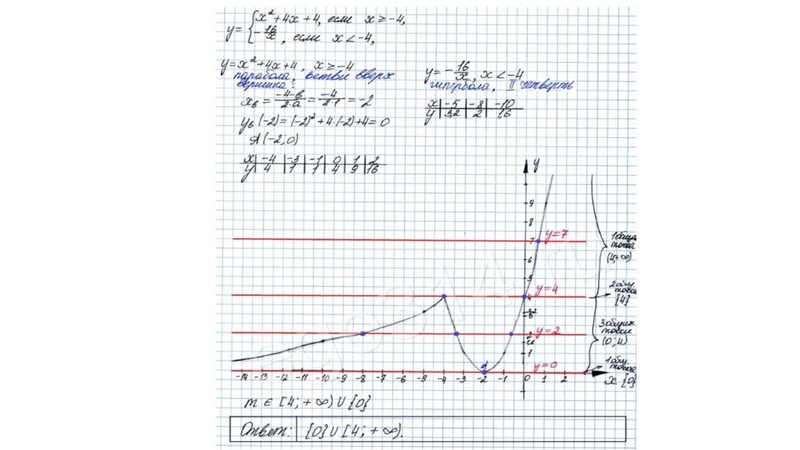 y= { x²+4x+4, если x≥-4,
-16/x, если x<-4,
y=x²+4x+4, x≥-4
парабола, ветви вверх
вершина:
xв = -4·b/2·a = -4/2·1 = -2
yв(-2)=(-2)²+4·(-2)+4=0
A(-2;0)
x -4 -3 -1 0 1 2
y 4 1 1 4 9 16
y=-16/x, x<-4
гипербола, II четверть
x -5 -8 -10
y 3,2 2 1,6
y
9
8
y=7
7
6
5
y=4
4
y=2
1
y=0
-14 -13 -12 -11 -10 -9 -8 -7 -6 -5 -4 -3 -2 -1 0 1 2 x
1 общ. точка
(4;+∞)
2 общ. точки
{4}
3 общих точки
(0;4)
1 общ. точка
{0}
m ∈ [4; +∞) ∪ {0}
Ответ: {0} ∪ [4; +∞).